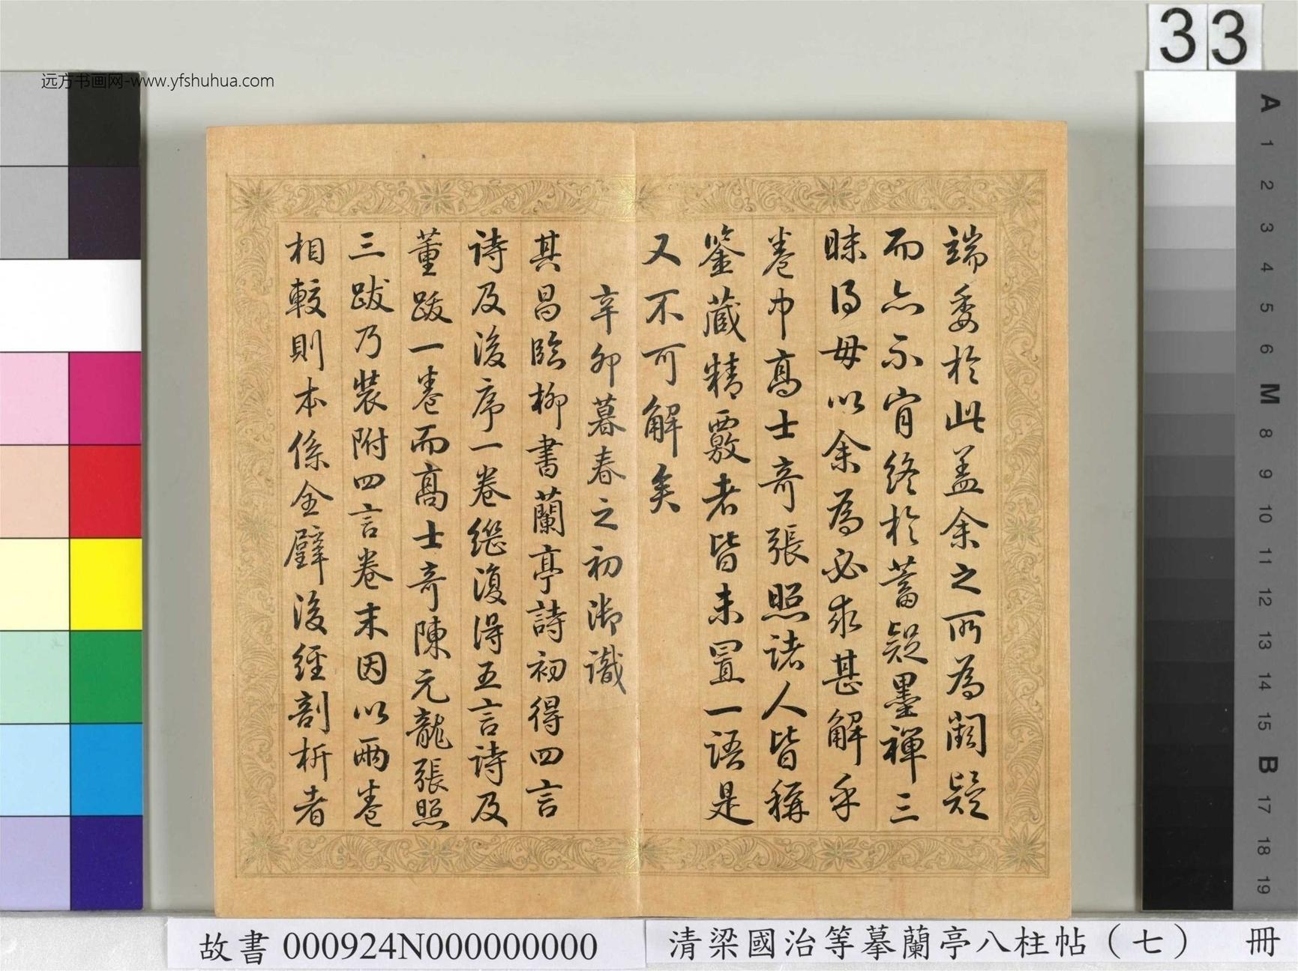 远方书画网-www.yfshuhua.com
33
端委於此盖余之所為闕疑
而亦不肯終於蓄疑墨禪三
昧得毋以余為必求甚解乎
卷中高士奇張照諸人皆稱
鑒藏精覈者皆未置一語是
又不可解矣
辛卯暮春之初御識
其昌臨柳書蘭亭詩初得四言
詩及後序一卷繼復得五言詩及
董跋一卷而高士奇陳元龍張照
三跋乃裝附四言卷末因以兩卷
相較則本係全璧後經剖析者
A 1 2 3 4 5 6 M 8 9 10 11 12 13 14 15 B 17 18 19
故書 000924N000000000
清梁國治等摹蘭亭八柱帖（七） 冊